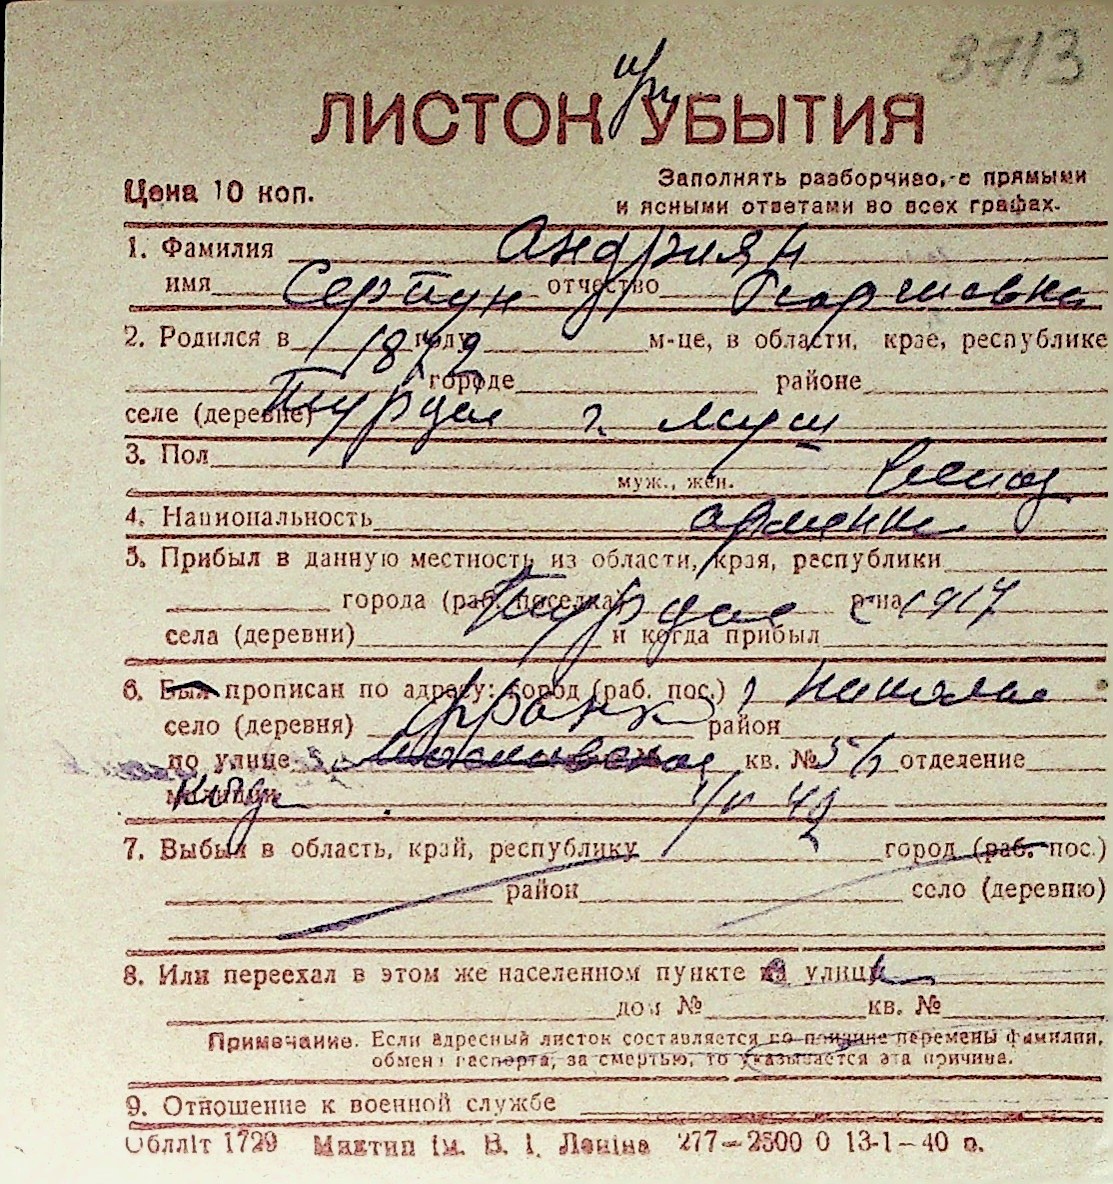 3713
при
ЛИСТОК УБЫТИЯ
Цена 10 коп.
Заполнять разборчиво, с прямыми
и ясными ответами во всех графах.
1. Фамилия Андриян
имя отчество Георгиевна
2. Родился в 1872 году м-це, в области, крае, республике
городе районе
селе (деревне) Турция г. Муш
3. Пол
муж., жен.
4. Национальность армянка
5. Прибыл в данную местность из области, края, республики
города (раб. поселка) Турция р-на 1917
села (деревни) и когда прибыл
6. Был прописан по адресу: город (раб. пос.) г Николаев
село (деревня) район
по улице Московская кв. № 5 отделение
милиции
7. Выбыл в область, край, республику город (раб. пос.)
район село (деревню)
8. Или переехал в этом же населенном пункте на улицу
дом № кв. №
Примечание. Если адресный листок составляется по причине перемены фамилии,
обмена паспорта, за смертью, то указывается эта причина.
9. Отношение к военной службе
Облліт 1729 Миктип ім. В. І. Леніна 277—2500 0 13-1-40 р.